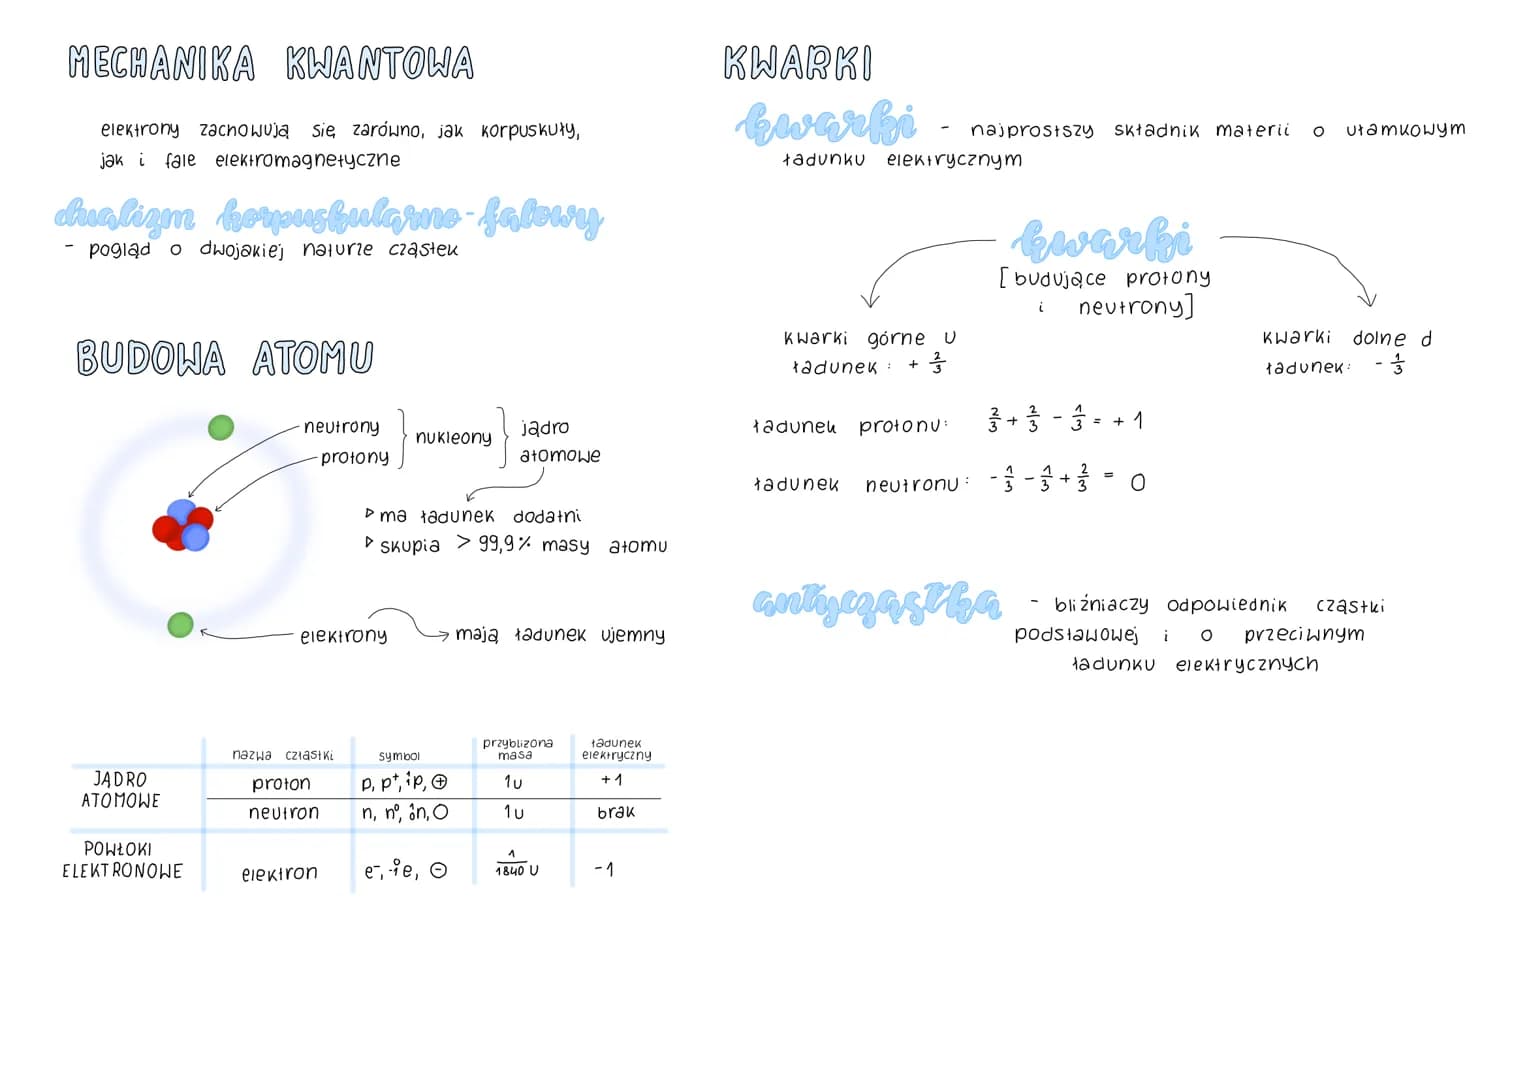 MECHANIKA KWANTOWA
elektrony zachowują się zarówno, jak korpuskuły,
jak i fale elektromagnetyczne
dualizm korpuskularno-falowy
- pogląd o dwojakiej naturze cząstek
BUDOWA ATOMU
neutrony
protony
nukleony
jądro
atomowe
▷ ma ładunek dodatni
▷ skupia > 99,9% masy atomu
elektrony
mają ładunek ujemny
nazwa cząstki symbol przybliżona masa ładunek elektryczny
JĄDRO ATOMOWE
proton p, p⁺, ¹₁p, ⊕ 1u +1
neutron n, n⁰, ¹₀n, O 1u brak
POWŁOKI ELEKTRONOWE
elektron e⁻, ⁰₋₁e, ⊖ 1/1840 u -1
KWARKI
kwarki - najprostszy składnik materii o ułamkowym
ładunku elektrycznym
kwarki
[budujące protony
i neutrony]
kwarki górne u
ładunek: + 2/3
kwarki dolne d
ładunek: - 1/3
ładunek protonu: 2/3 + 2/3 - 1/3 = + 1
ładunek neutronu: - 1/3 - 1/3 + 2/3 = 0
antycząstka - bliźniaczy odpowiednik cząstki
podstawowej i o przeciwnym
ładunku elektrycznych